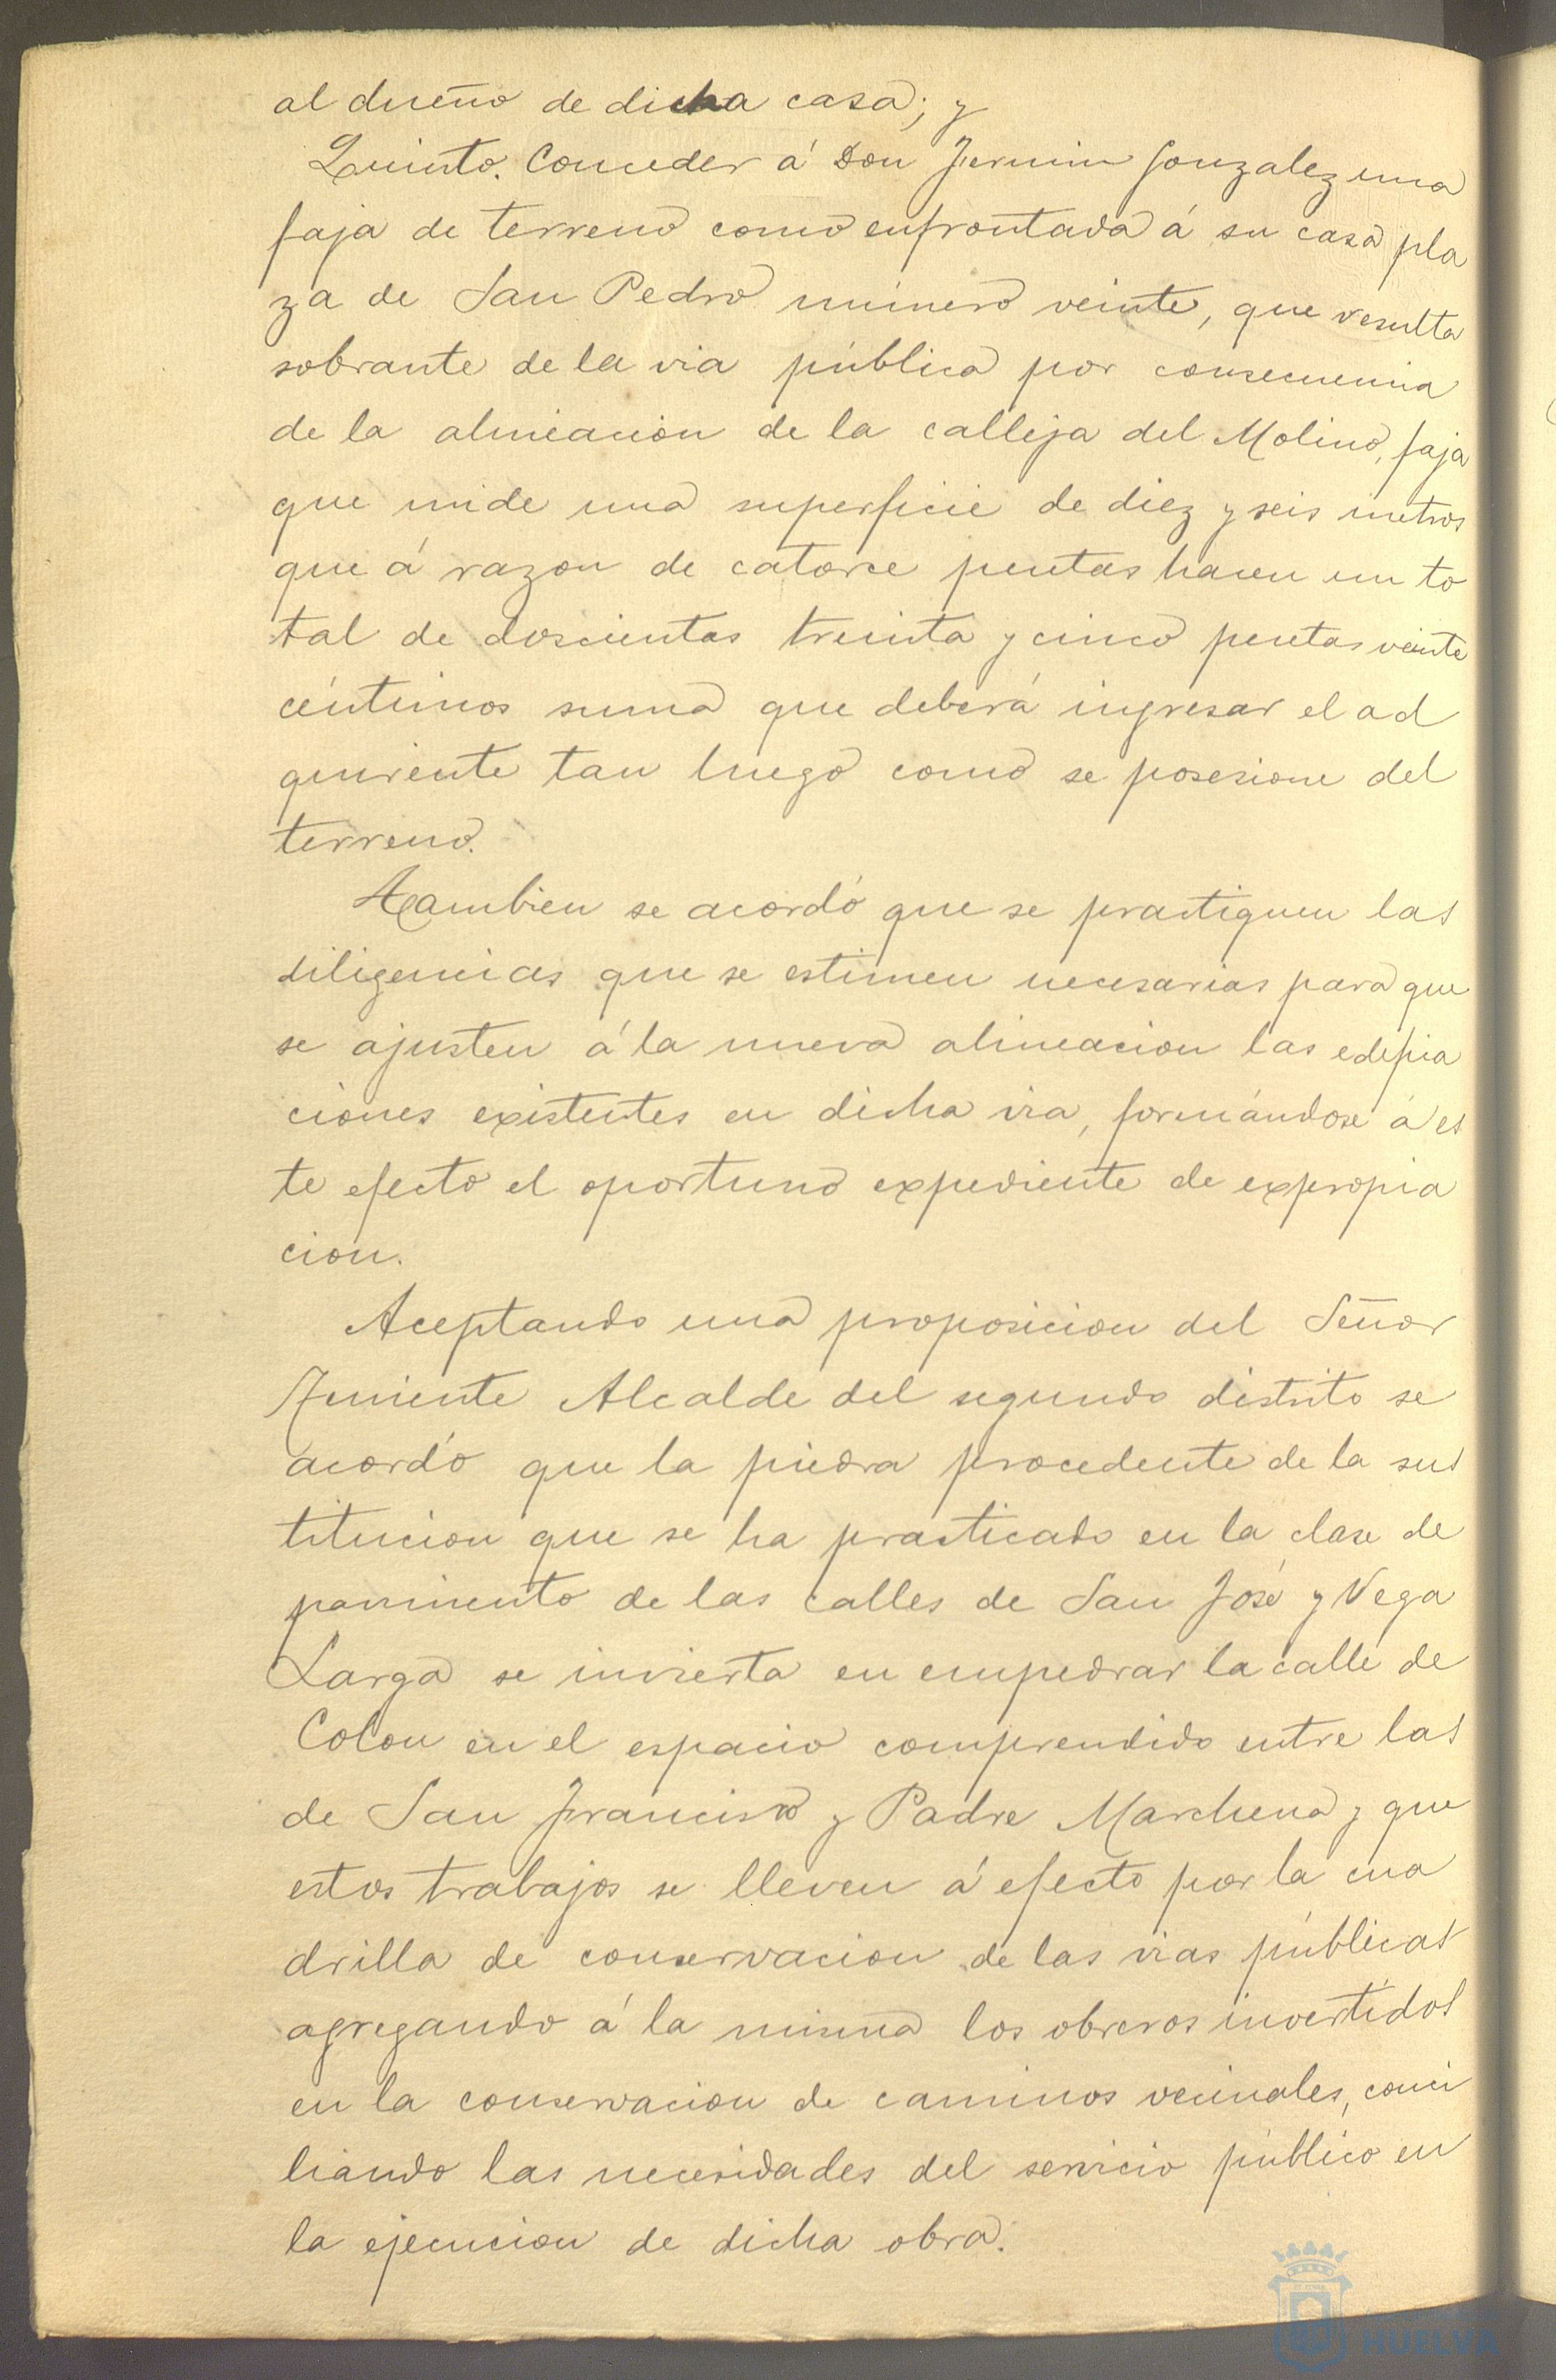 al dueño de dicha casa; y
Quinto. Conceder á Don Fermin Gonzalez una
faja de terreno como enfrontada á su casa pla
za de San Pedro número veinte, que resulta
sobrante de la via pública por consecuencia
de la alineacion de la calleja del Molino, faja
que mide una superficie de diez y seis metros
que á razon de catorce pesetas hacen un to
tal de doscientas treinta y cinco pesetas veinte
céntimos suma que deberá ingresar el ad
quirente tan luego como se posesione del
terreno.
Tambien se acordó que se practiquen las
diligencias que se estimen necesarias para que
se ajusten á la nueva alineacion las edifica
ciones existentes en dicha via, formándose á es
te efecto el oportuno expediente de expropia
cion.
Aceptando una proposicion del Señor
Teniente Alcalde del segundo distrito se
acordó que la piedra procedente de la sus
titucion que se ha practicado en la clase de
pavimento de las calles de San José y Vega
Larga se invierta en empedrar la calle de
Colon en el espacio comprendido entre las
de San Francisco y Padre Marchena y que
estos trabajos se lleven á efecto por la cua
drilla de conservacion de las vias públicas
agregando á la misma los obreros invertidos
en la conservacion de caminos vecinales, conci
liando las necesidades del servicio público en
la ejecucion de dicha obra.
HUELVA